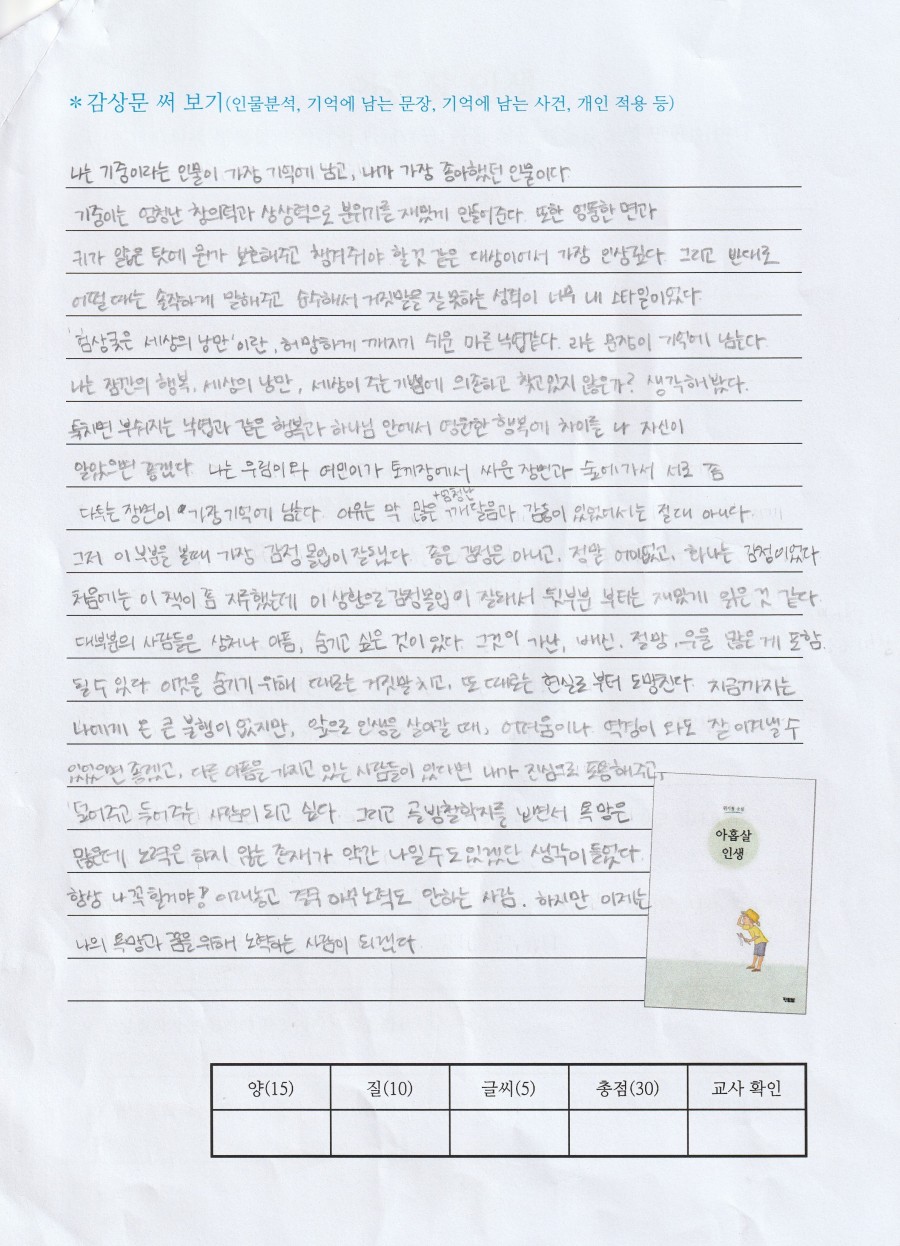 *감상문 써 보기(인물분석, 기억에 남는 문장, 기억에 남는 사건, 개인 적용 등)
나는 기중이라는 인물이 가장 기억에 남고, 내가 가장 좋아했던 인물이다.
기중이는 엄청난 창의력과 상상력으로 분위기를 재밌게 만들어준다. 또한 엉뚱한 면과
귀가 얇은 탓에 뭔가 보호해주고 챙겨줘야 할 것 같은 대상이어서 가장 인상깊다. 그리고 반대로
어떨 때는 솔직하게 말해주고 순수해서 거짓말을 잘 못하는 성격이 너무 내 스타일이었다.
'험상궂은 세상의 낭만'이란, 허망하게 깨지기 쉬운 마른 낙엽같다. 라는 문장이 기억에 남는다.
나는 잠깐의 행복, 세상의 낭만, 세상이 주는 기쁨에 의존하고 찾고있지 않은가? 생각해봤다.
툭치면 부숴지는 낙엽과 같은 행복과 하나님 안에서 영원한 행복에 차이를 나 자신이
알았으면 좋겠다. 나는 우림이와 여민이가 토끼장에서 싸운 장면과 숲에가서 서로 좀
다투는 장면이 가장 기억에 남는다. 이유는 막 많은 +엄청난 깨달음과 감동이 있었어서는 절대 아니다.
그저 이 부분을 볼때 가장 감정 몰입이 잘됐다. 좋은 감정은 아니고, 정말 어이없고, 화나는 감정이었다
처음에는 이 책이 좀 지루했는데 이 상황으로 감정몰입이 잘돼서 뒷부분 부터는 재밌게 읽은 것 같다.
대부분의 사람들은 상처나 아픔, 숨기고 싶은 것이 있다. 그것이 가난, 배신, 절망, 우울 많은 게 포함
될 수 있다. 이것을 숨기기 위해 때로는 거짓말 치고, 또 때로는 현실로부터 도망친다. 지금까지는
나에게 온 큰 불행이 없지만, 앞으로 인생을 살아갈 때, 어려움이나 역경이 와도 잘 이겨낼 수
있었으면 좋겠고, 다른 아픔을 가지고 있는 사람들이 있다면 내가 진심으로 포용해주고,
덜어주고 들어주는 사람이 되고 싶다. 그리고 골방철학자를 보면서 욕망은
많은데 노력은 하지 않는 존재가 약간 나일 수도 있겠단 생각이 들었다.
항상 나 꼭 할거야! 이래놓고 결국 아무 노력도 안하는 사람. 하지만 이제는
나의 욕망과 꿈을 위해 노력하는 사람이 되겠다.
위기철 소설
아홉살
인생
양(15) 질(10) 글씨(5) 총점(30) 교사 확인